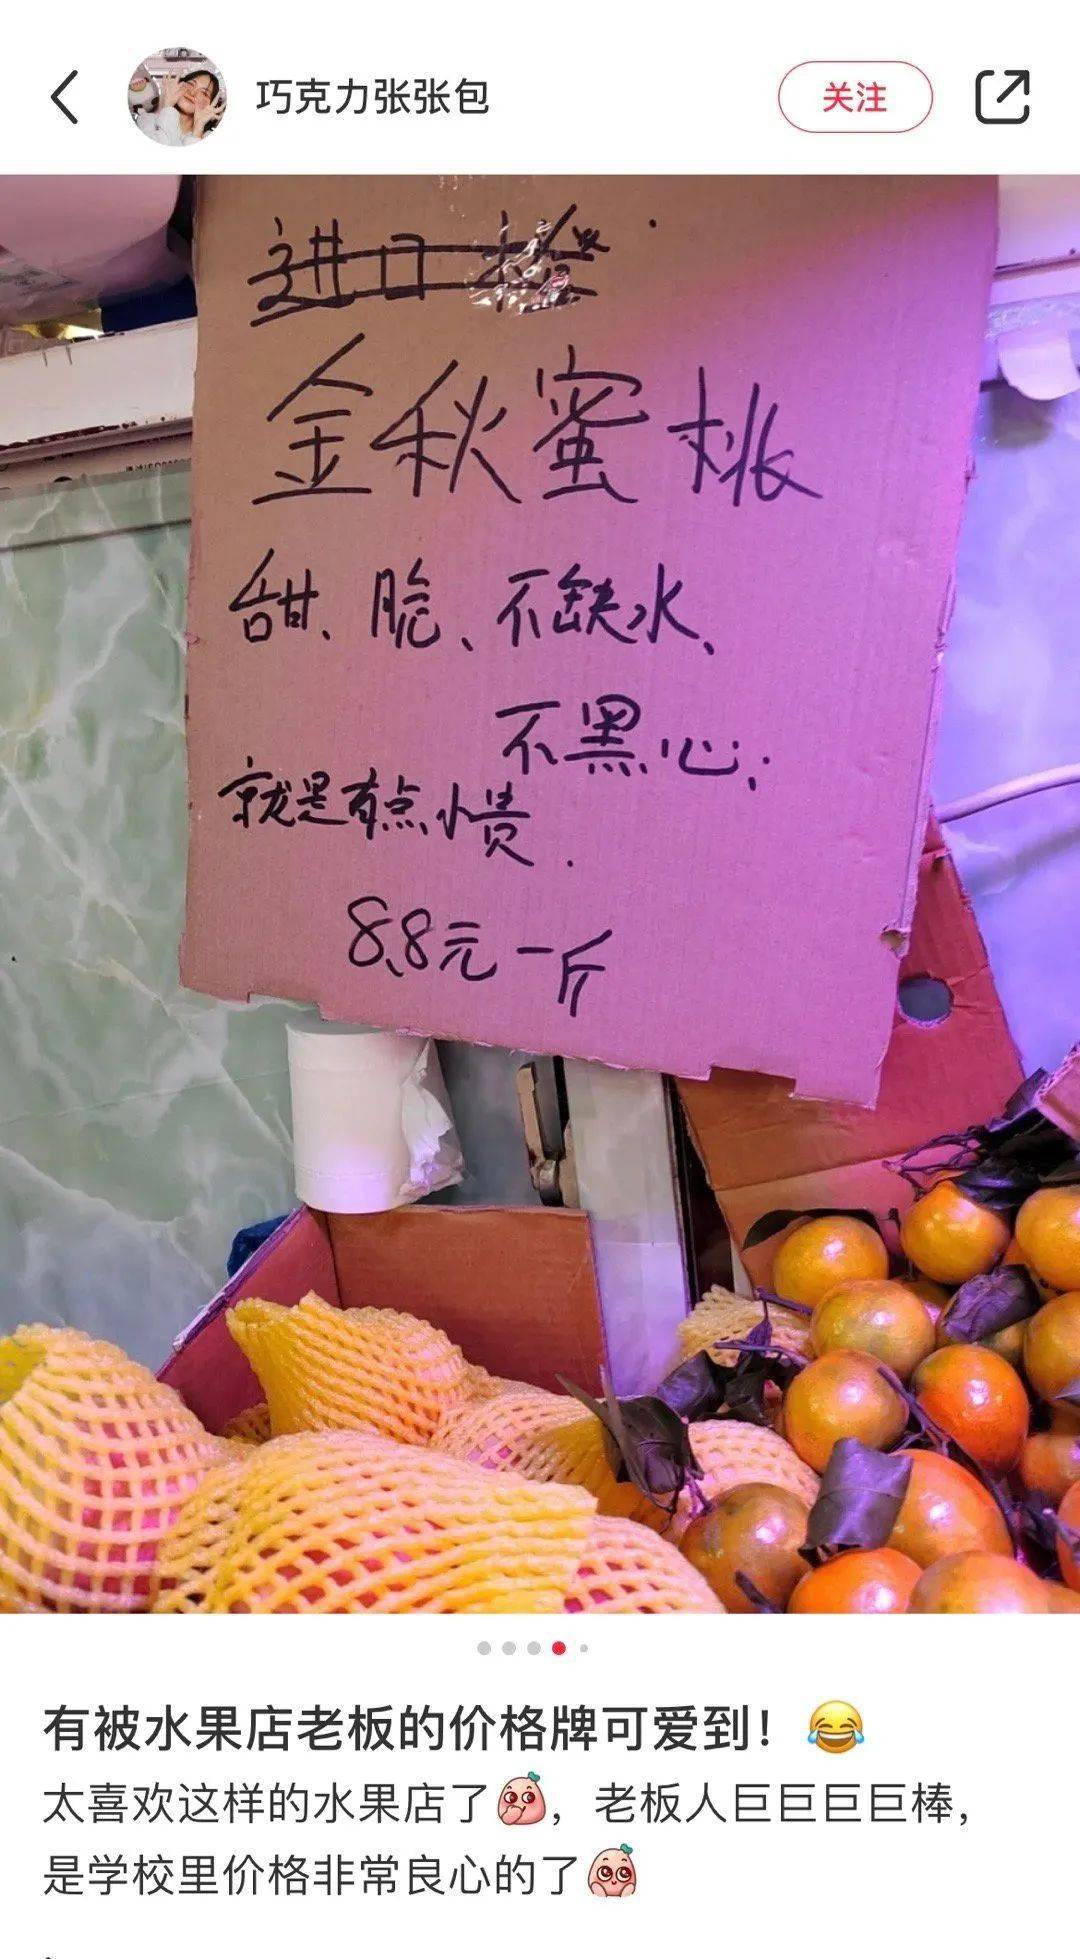 巧克力张张包
关注
进口橙
金秋蜜桃
甜、脆、不缺水、
不黑心;
就是有点小贵.
8.8元一斤
有被水果店老板的价格牌可爱到！😂
太喜欢这样的水果店了，老板人巨巨巨巨棒，
是学校里价格非常良心的了